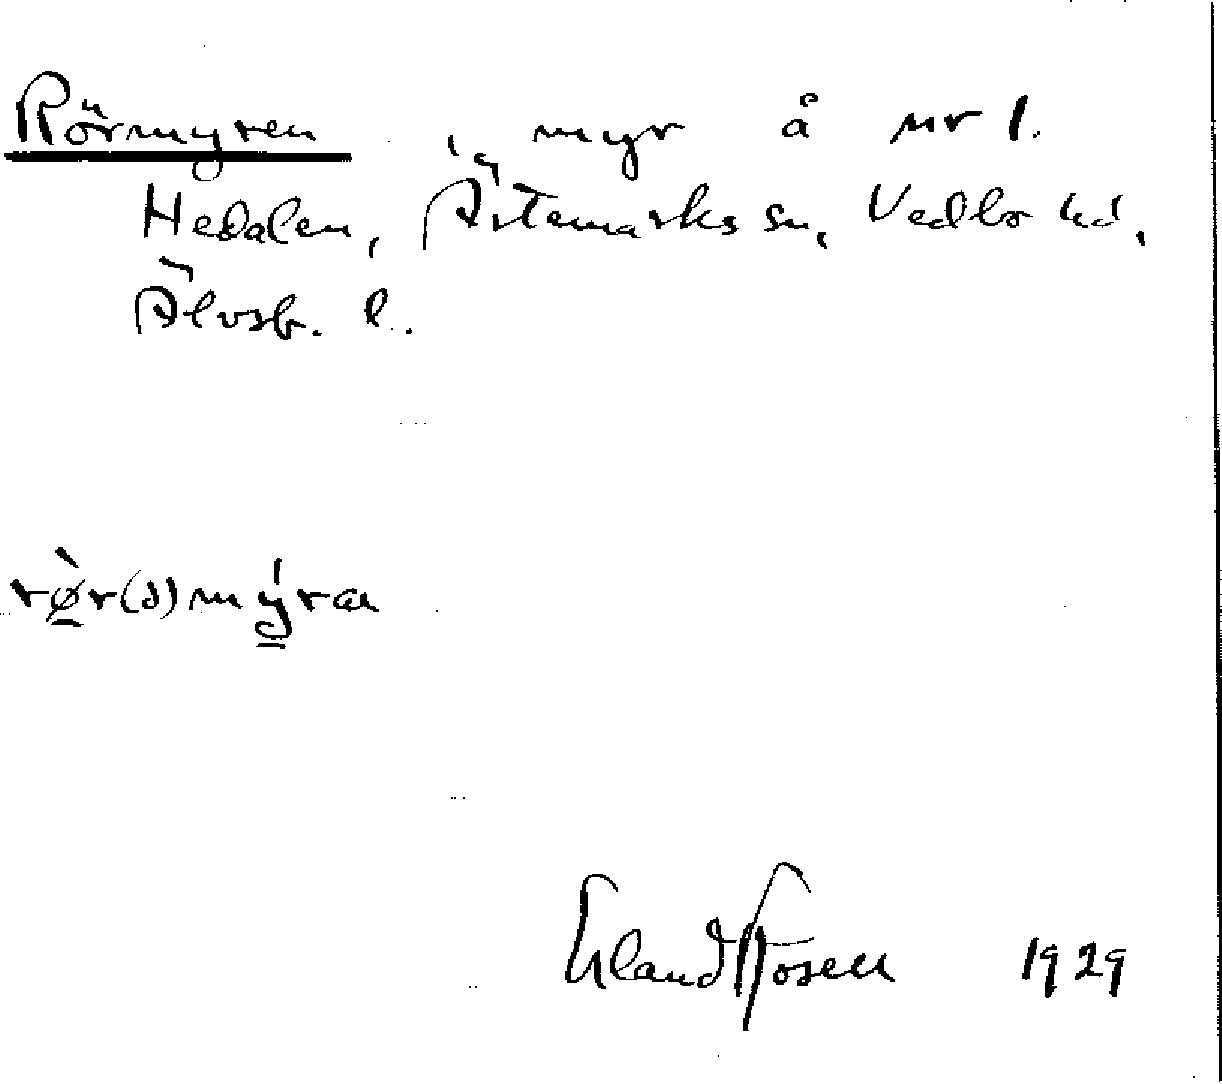 Rörmyren, myr å nr 1.
Hedalen, Ärtemarks sn, Vedbo hd,
Älvsb. l.
rø̀r(ə)mýra
Erland Rosell 1929